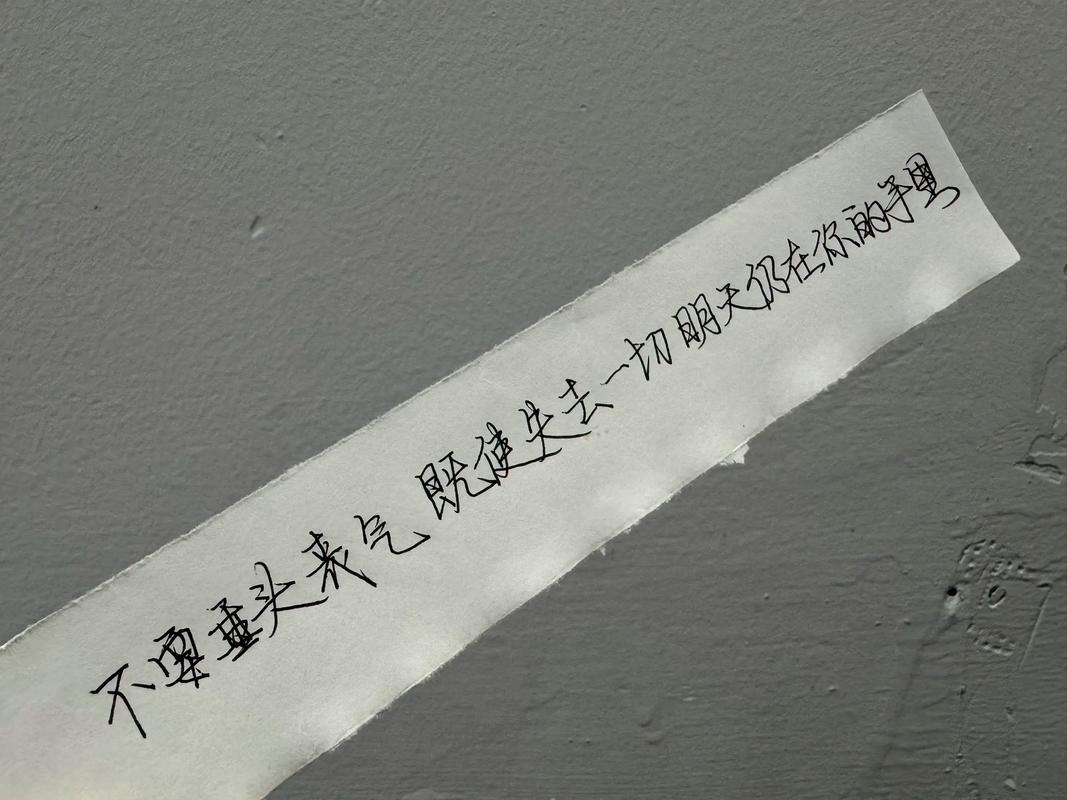 不要垂头丧气既使失去一切明天仍在你的手里